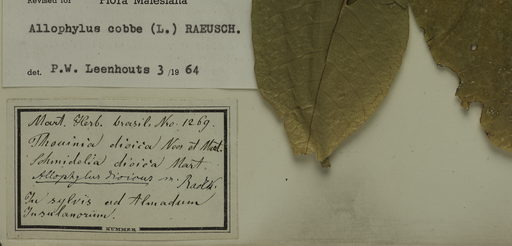 Revised for Flora Malesiana
Allophylus cobbe (L.) RAEUSCH.
det. P.W. Leenhouts 3 /19 64
Mart. Herb. brasil. Nro. 1269.
Thouinia dioica Nees et Mart.
Schmidelia dioica Mart.
Allophylus dioicus m. Radlk.
In sylvis ad Almadam
Insulanorum.
KUMMER